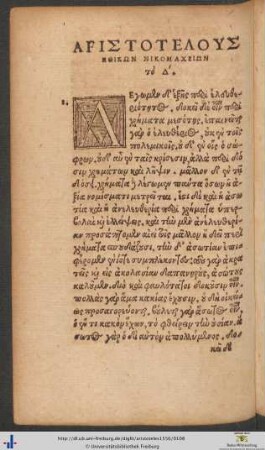 ΑΡΙΣΤΟΤΕΛΟΥΣ
ΗΘΙΚΩΝ ΝΙΚΟΜΑΧΕΙΩΝ
τὸ Δ.
Λέγωμεν δ' ἑξῆς περὶ ἐλευθε-
ριότητος. δοκεῖ δὲ εἶναι περὶ
χρήματα μεσότης. ἐπαινεῖται
γὰρ ὁ ἐλευθέριος, οὐκ ἐν τοῖς
πολεμικοῖς, ἐν οἷς ὁ σώ-
φρων, οὐδ' αὖ ἐν ταῖς κρίσεσιν, ἀλλὰ περὶ δό-
σιν χρημάτων καὶ λῆψιν. μᾶλλον δ' ἐν τῇ
δόσει. χρήματα δὲ λέγομεν πάντα ὅσων ἡ ἀξία
νομίσματι μετρεῖται. ἔστι δὲ καὶ ἡ ἀσω-
τία καὶ ἡ ἀνελευθερία περὶ χρήματα
καὶ ἐλλείψεις. καὶ τὴν μὲν ἀνελευθερίαν
προσάπτομεν ἀεὶ τοῖς μᾶλλον ἢ δεῖ περὶ
χρήματα σπουδάζουσι. τὴν δ' ἀσωτίαν ἐπι-
φέρομεν ἐνίοτε συμπλέκοντες. τοὺς γὰρ ἀκρα-
τεῖς καὶ εἰς ἀκολασίαν δαπανηροὺς, ἀσώτους
καλοῦμεν. διὸ καὶ φαυλότατοι δοκοῦσιν εἶναι.
πολλὰς γὰρ ἅμα κακίας ἔχουσιν. οὐ δὴ οἰκείως
προσαγορεύονται. βούλεται γὰρ ἄσωτος εἶναι,
ὁ ἕν τι κακὸν ἔχων, τὸ φθείρειν τὴν οὐσίαν. ἄ-
σωτος γὰρ ὁ δι' αὑτὸν ἀπολλύμενος. δο-
http://dl.ub.uni-freiburg.de/diglit/
© Universitätsbibliothek Freiburg